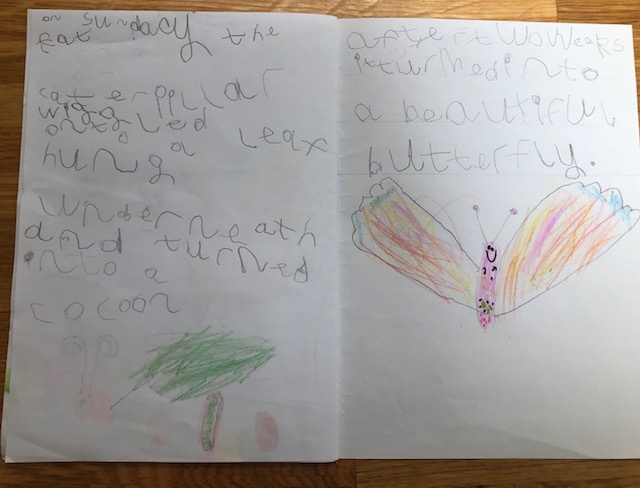 on sunday the
fat
caterpillar
wigg
onto led
a leax
hung
Underneath
and turned
into a
cocoon
after two weaks
it turned into
a beautiful
butterfly.